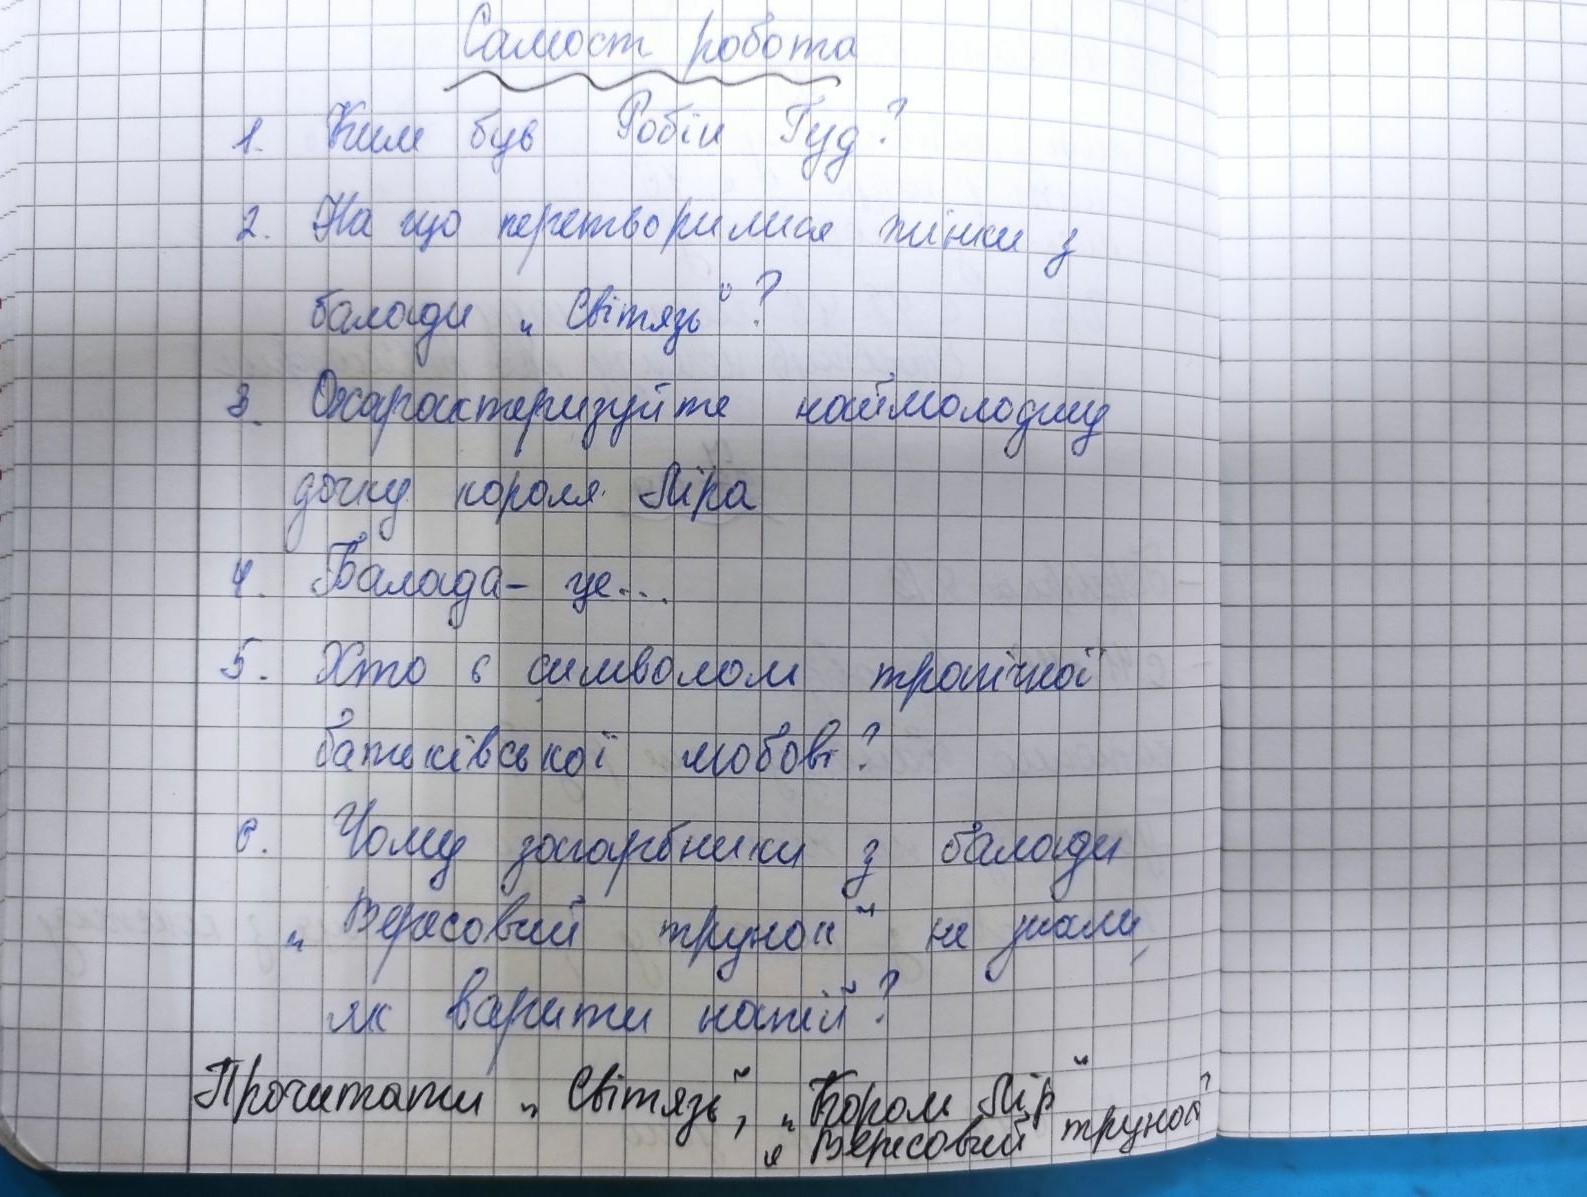 Самост робота
1. Ким був Робін Гуд?
2. На що перетворилися жінки з
балади „Світязь"?
3. Охарактеризуйте наймолодшу
дочку короля Ліра
4. Балада - це...
5. Хто є символом трагічної
батьківської любові?
6. Чому загарбники з балади
„Вересовий трунок" не знали,
як варити напій?
Прочитати „Світязь", „Король Лір"
„Вересовий трунок"